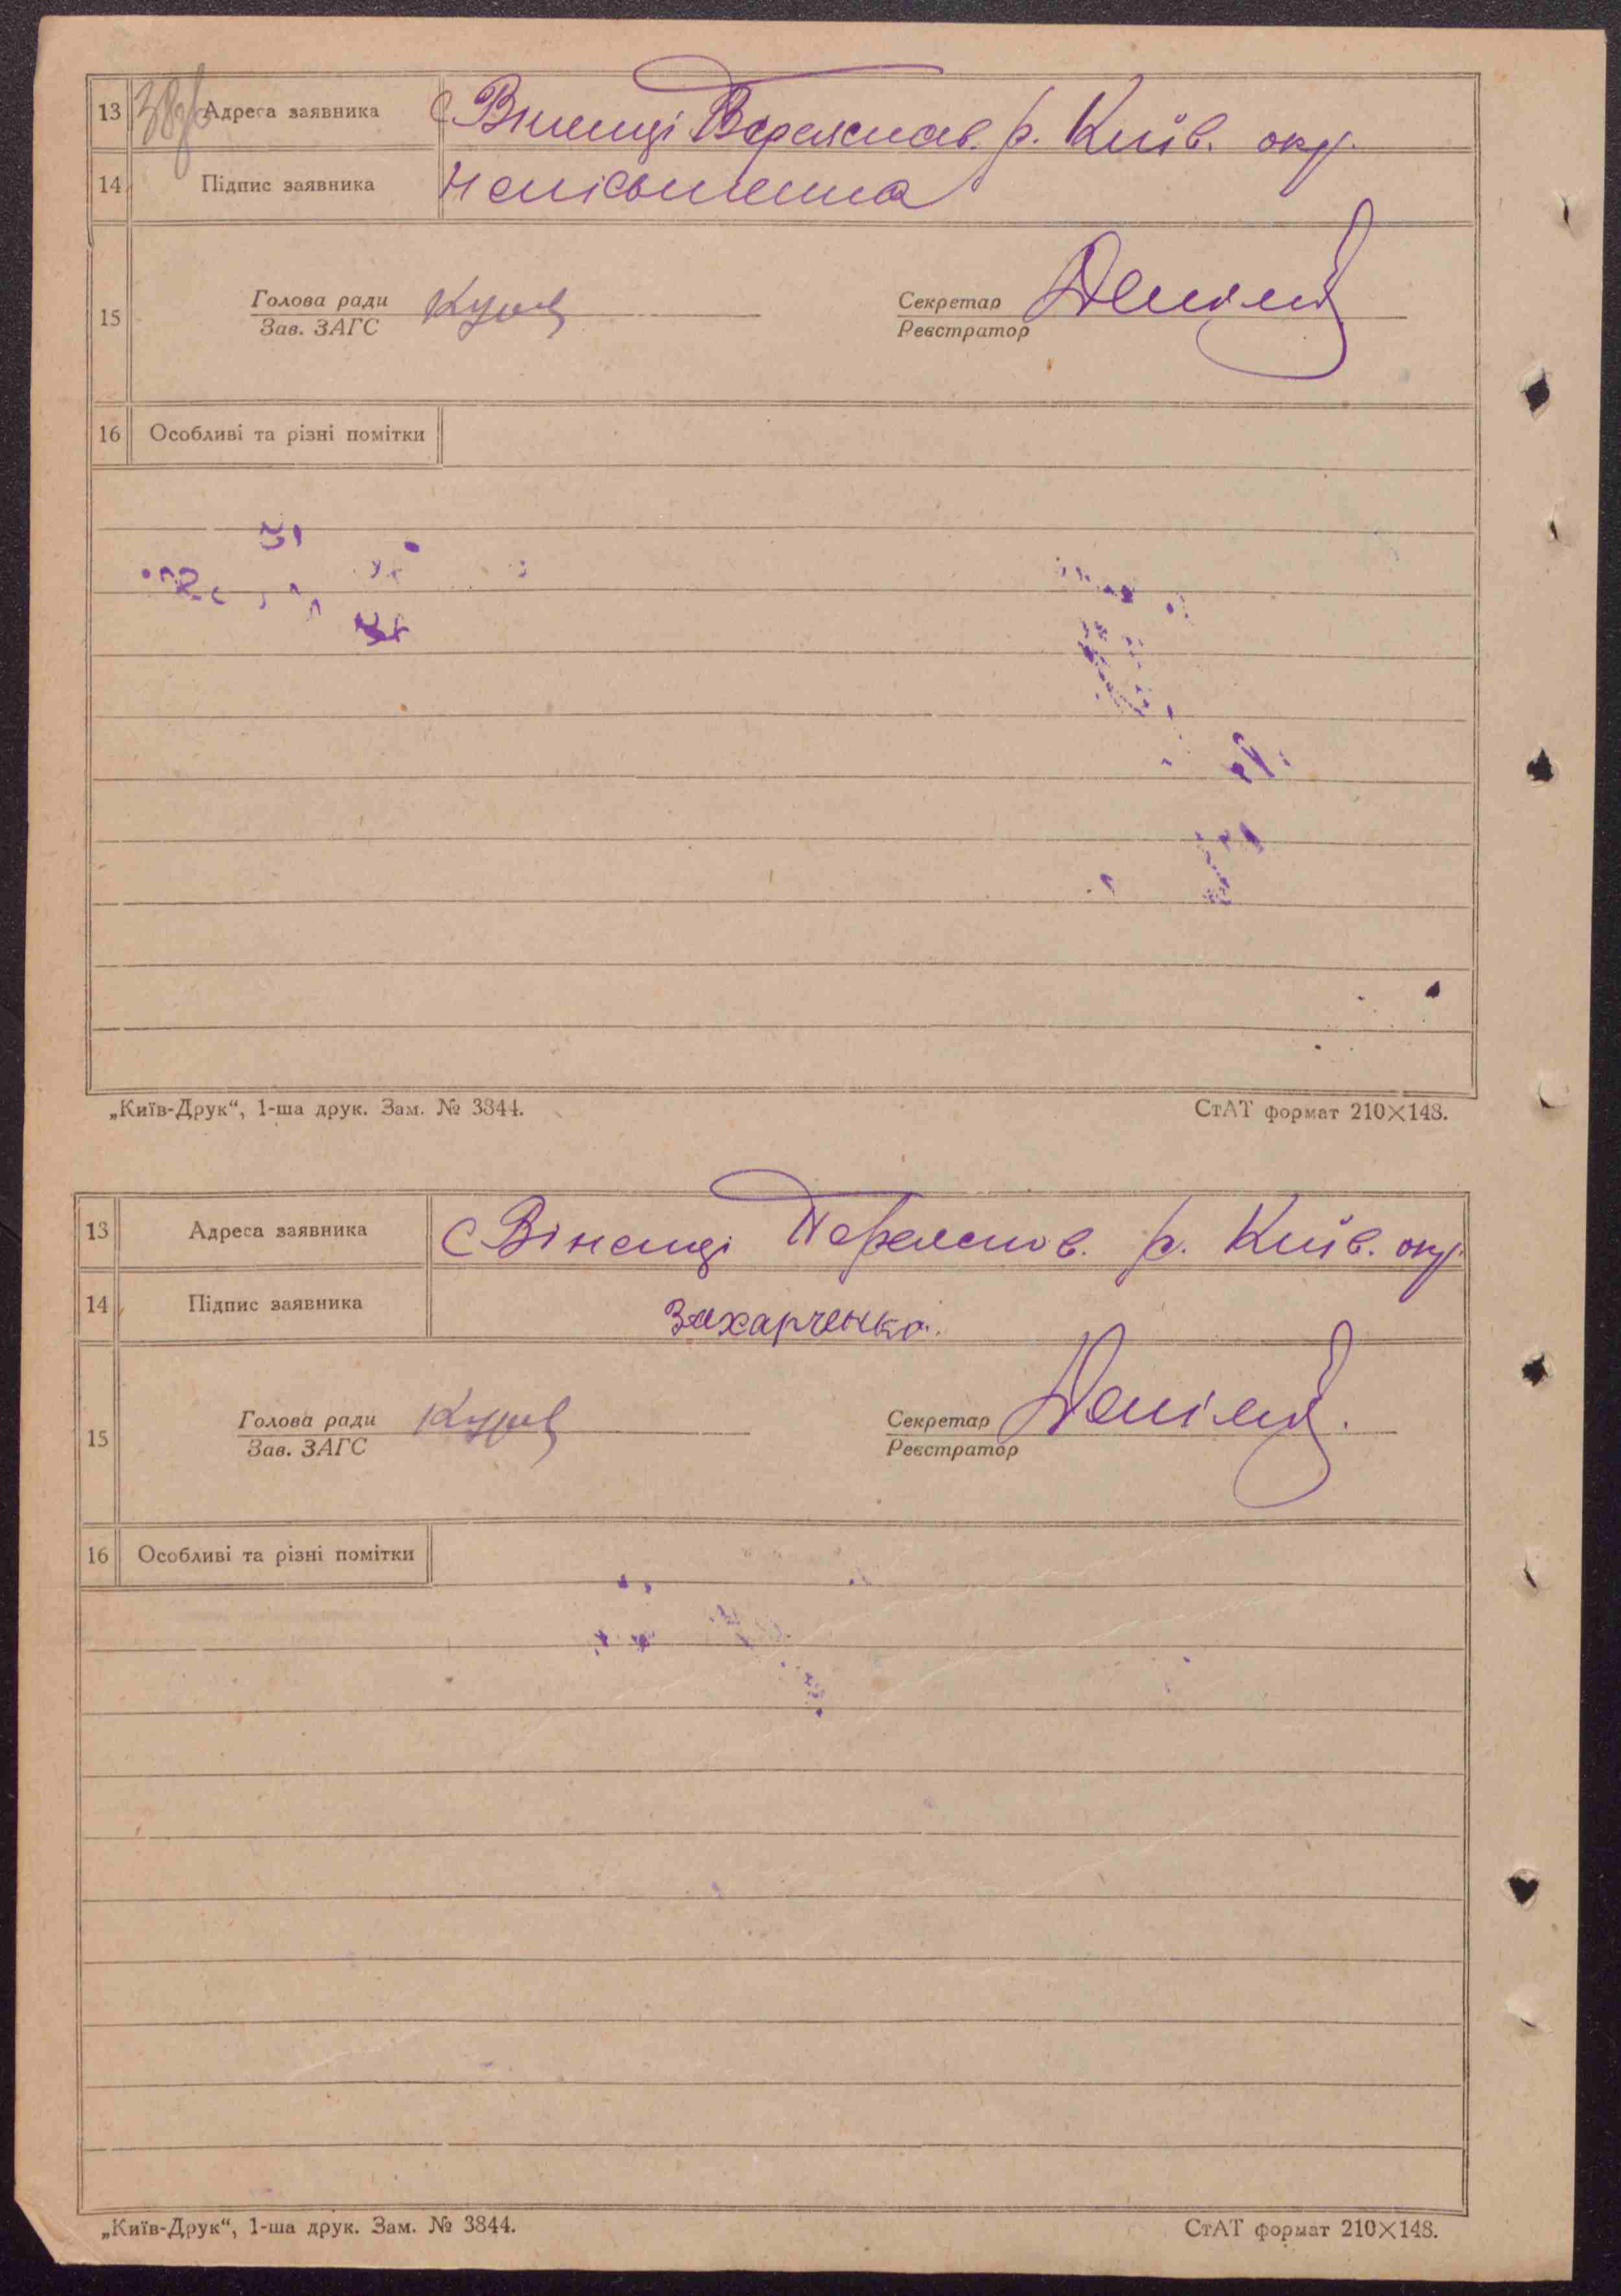 13 Адреса заявника с Віненці Переяслав. р. Київ. окр.
14 Підпис заявника Неписьменна
15 Голова ради Секретар
Зав. ЗАГС Реєстратор
16 Особливі та різні помітки
„Київ-Друк“, 1-ша друк. Зам. № 3844. СтАТ формат 210×148.
13 Адреса заявника с Віненці Переяслов. р. Київ. окр.
14 Підпис заявника Захарченко.
15 Голова ради Секретар
Зав. ЗАГС Реєстратор
16 Особливі та різні помітки
„Київ-Друк“, 1-ша друк. Зам. № 3844. СтАТ формат 210×148.